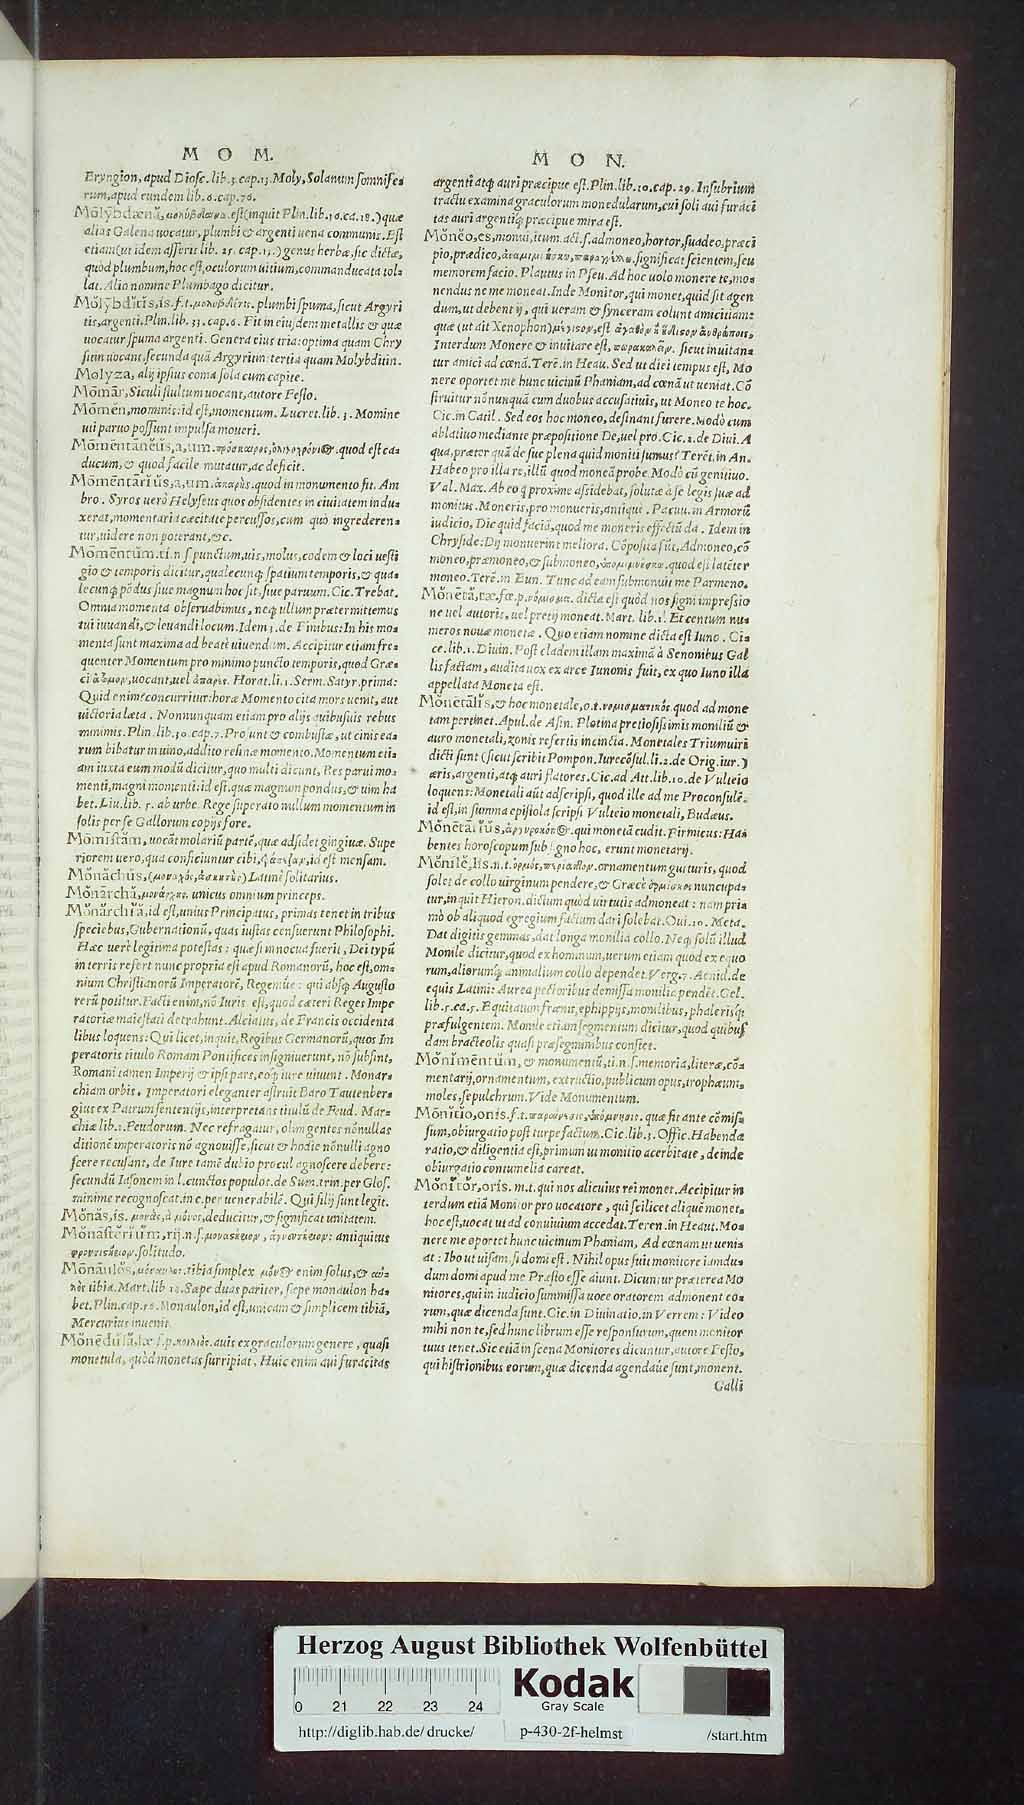 M O M.
Eryngion, apud Diosc. lib. 3. cap. 13. Moly, Solanum somnife-
rum, apud eundem lib. 6. cap. 76.
Mŏlўbdæna, est (inquit Plin. lib. ca. 18.) quæ
alias Galena uocatur, plumbi & argenti uena communis. Est
etiam (ut idem asserit lib. 25. cap. 13.) genus herbæ, sic dictæ,
quòd plumbum, hoc est, oculorum uitium, commanducata tol-
lat. Alio nomine Plumbago dicitur.
Mŏlўbdītis, is. f. t. plumbi spuma, sicut Argyri
tis, argenti. Plin. lib. 33. cap. 6. Fit in eisdem metallis & quæ
uocatur spuma argenti. Genera eius tria: optima quam Chry
sitim uocant, secunda quā Argyrium: tertia quam Molybditin.
Molyza, alij ipsius coma sola cum capite.
Mōmār, Siculi stultum uocant, autore Festo.
Mōmĕn, mominis: id est, momentum. Lucret. lib. 3. Momine
uti paruo possunt impulsa moueri.
Mōmēntānĕŭs, a, um. quod est ca-
ducum, & quod facile mutatur, ac deficit.
Mōmēntārĭŭs, a, um. quod in momento fit. Am
bro. Syros uerò Helyseus quos obsidentes in ciuitatem indu-
xerat, momentaria cæcitate percussos, cum quò ingrederen-
tur, uidere non poterant, &c.
Mōmēntŭm. ti. n. s punctum, uis, motus, eodem & loci uesti
gio & temporis dicitur, qualecunq; spatium temporis, & qua-
lecunq; pōdus siue magnum hoc sit, siue paruum. Cic. Trebat.
Omnia momenta obseruabimus, neq; ullum prætermittemus
tui iuuandi, & leuandi locum. Idem 3. de Finibus: In his mo-
menta sunt maxima ad beatè uiuendum. Accipitur etiam fre-
quenter Momentum pro minimo puncto temporis, quod Græ-
ci uocant, uel Horat. li. 1. Serm. Satyr. prima:
Quid enim? concurritur: horæ Momento cita mors uenit, aut
uictoria læta. Nonnunquam etiam pro alijs quibusuis rebus
minimis. Plin. lib. 30. cap. 7. Prosunt & combustæ, ut cinis ea-
rum bibatur in uino, addito resinæ momento. Momentum eti-
am iuxta eum modū dicitur, quo multi dicunt, Res parui mo-
menti, magni momenti: id est, quæ magnum pondus, & uim ha
bet. Liu. lib. 5. ab urbe. Rege superato nullum momentum in
solis per se Gallorum copijs fore.
Mōmīstām, uocāt molariū partē, quæ adsidet gingiuæ. Supe
riorem uero, qua conficiuntur cibi, id est mensam.
Mŏnăchŭs, Latinè solitarius.
Mŏnārcha, unicus omnium princeps.
Mŏnārchĭă, id est, unius Principatus, primas tenet in tribus
speciebus, Gubernationū, quas iustas censuerunt Philosophi.
Hæc uerè legitima potestas: quæ si innocua fuerit, Dei typū
in terris refert nunc propria est apud Romanorū, hoc est, om-
nium Christianorū Imperatorē, Regemue: qui absq; Augusto
rerū potitur. Facti enim, nō Iuris est, quod cæteri Reges Impe
ratoriæ maiestati detrahunt. Alciatus, de Francis occidenta
libus loquens: Qui licet, inquit, Regibus Germanorū, quos Im
peratoris titulo Romam Pontifices insigniuerunt, nō subsint,
Romani tamen Imperij & ipsi pars, eoq; iure uiuunt. Monar-
chiam orbis. Imperatori eleganter astruit Baro Tautenber-
gius ex Patrum sententijs, interpretans titulū de Feud. Mar-
chiæ lib. 2. Feudorum. Nec refragatur, olim gentes nōnullas
ditionē imperatoris nō agnouisse, sicut & hodie nōnulli agno
scere recusant, de Iure tamē dubio procul agnoscere debere:
secundū Iasonem in l. cunctos populot. de Sum. trin. per Glos.
minime recognoscat. in c. per uenerabilē. Qui filij sunt legit.
Mŏnăs, is. deducitur, & significat unitatem.
Mŏnāstērĭŭm, rij. n. s. antiquitus
solitudo.
Mŏnāulŏs, tibia simplex enim solus, &
tibia. Mart. lib Sæpe duas pariter, sæpe monaulon ha-
bet. Plin. cap. Monaulon, id est, unicam & simplicem tibiā,
Mercurius inuenit.
Mŏnēdŭlă, læ f. p. auis ex graculorum genere, quasi
monetula, quòd monetas surripiat, Huic enim aui furacitas
M O N.
argenti atq; auri præcipue est. Plin. lib. 10. cap. 29. Insubrium
tractu examina graculorum monedularum, cui soli aui furaci
tas auri argentiq; præcipue mira est.
Mŏnĕo, es, monui, itum. act. s. admoneo, hortor, suadeo, præci
pio, prædico, significat scientem, seu
memorem facio. Plautus in Pseu. Ad hoc uolo monere te, mo-
nendus ne me moneat. Inde Monitor, qui monet, quid sit agen
dum, ut debent ij, qui ueram & synceram colunt amicitiam:
quæ (ut ait Xenophon)
Interdum Monere & inuitare est, sicut inuitan-
tur amici ad cœnā. Terē. in Heau. Sed ut diei tempus est, Mo
nere oportet me hunc uicinū Phaniam, ad cœnā ut ueniat. Cō
struitur nōnunquā cum duobus accusatiuis, ut Moneo te hoc.
Cic. in Catil. Sed eos hoc moneo, desinant furere. Modò cum
ablatiuo mediante præpositione De, uel pro. Cic. 2. de Diui. A
qua, præter quā de sue plena quid moniti sumus? Terēt. in An.
Habeo pro illa re, illū quod moneā probe. Modò cū genitiuo.
Val. Max. Ab eo q̃ proxime assidebat, solutæ à se legis suæ ad
monitus. Moneris, pro monueris, antiquè. Pacuu. in Armorū
iudicio, Dic quid faciā, quod me moneris effectū da. Idem in
Chryside: Dij monuerint meliora. Cōposita sūt, Admoneo, cō
moneo, præmoneo, & submoneo, quod est latēter
moneo. Terē. in Eun. Tunc ad eam submonuit me Parmeno.
Mŏnētă, tæ. fœ. p. dicta est quòd nos signi impressio
ne uel autoris, uel pretij moneat. Mart. lib. 1. Et centum nu-
meros nouæ monetæ. Quo etiam nomine dicta est Iuno. Ci-
ce. lib. 1. Diuin. Post cladem illam maximā à Senonibus Gal
lis factam, audita uox ex arce Iunonis fuit, ex quo Iuno illa
appellata Moneta est.
Mŏnētālĭs, & hoc monetale, o. t. quod ad mone
tam pertinet. Apul. de Asin. Plotina pretiosissimis moniliū &
auro monetali, zonis refertis incincta. Monetales Triumuiri
dicti sunt (sicut scribit Pompon. Iurecōsul. li. 2. de Orig. iur.)
æris, argenti, atq; auri flatores. Cic. ad Att. lib. 10. de Vulteio
loquens: Monetali aūt adscripsi, quod ille ad me Proconsulē.
id est, in summa epistola scripsi Vulteio monetali, Budæus.
Mŏnētārĭŭs, qui monetā cudit. Firmicus: Ha-
bentes horoscopum sub signo hoc, erunt monetarij.
Mŏnīlĕ, lis. n. t. ornamentum gutturis, quod
solet de collo uirginum pendere, & Græcè nuncupa-
tur, inquit Hieron. dictum quòd uirtutis admoneat: nam pri-
mò ob aliquod egregium factum dari solebat. Oui. 10. Meta.
Dat digitis gemmas, dat longa monilia collo. Neq; solū illud
Monile dicitur, quod ex hominum, uerum etiam quod ex equo
rum, aliorumq; animalium collo dependet. Verg. 7. Aeneid. de
equis Latini: Aurea pectoribus demissa monilia pendēt. Gel.
lib. 5. ca. 5. Equitatum frænis, ephippijs, monilibus, phalerisq;
præfulgentem. Monile etiam segmentum dicitur, quod quibus
dam bracteolis quasi præsegminibus constet.
Mŏnīmēntŭm, & monumentū, ti. n. s. memoria, literæ, cō-
mentarij, ornamentum, extructio, publicum opus, trophæum,
moles, sepulchrum. Vide Monumentum.
Mŏnĭtĭo, onis. f. t. quæ fit ante cōmis-
sum, obiurgatio post turpe factum. Cic. lib. 1. Offic. Habenda
ratio, & diligentia est, primum ut monitio acerbitate, deinde
obiurgatio contumelia careat.
Mŏnĭtŏr, oris. m. t. qui nos alicuius rei monet. Accipitur in
terdum etiā Monitor pro uocatore, qui scilicet aliquē monet,
hoc est, uocat ut ad conuiuium accedat. Teren. in Heaut. Mo-
nere me oportet hunc uicinum Phaniam, Ad cœnam ut ueni-
at: Ibo ut uisam, si domi est. Nihil opus fuit monitore iamdu-
dum domi apud me Præsto esse aiunt. Dicuntur præterea Mo
nitores, qui in iudicio summissa uoce oratorem admonent eo-
rum, quæ dicenda sunt. Cic. in Diuinatio. in Verrem: Video
mihi non te, sed hunc librum esse responsurum, quem monitor
tuus tenet. Sic etiā in scena Monitores dicuntur, autore Festo,
qui histrionibus eorum, quæ dicenda agendaue sunt, monent.
Galli
Herzog August Bibliothek Wolfenbüttel
0 21 22 23 24
Kodak
Gray Scale
http://diglib.hab.de/drucke/ p-430-2f-helmst /start.htm